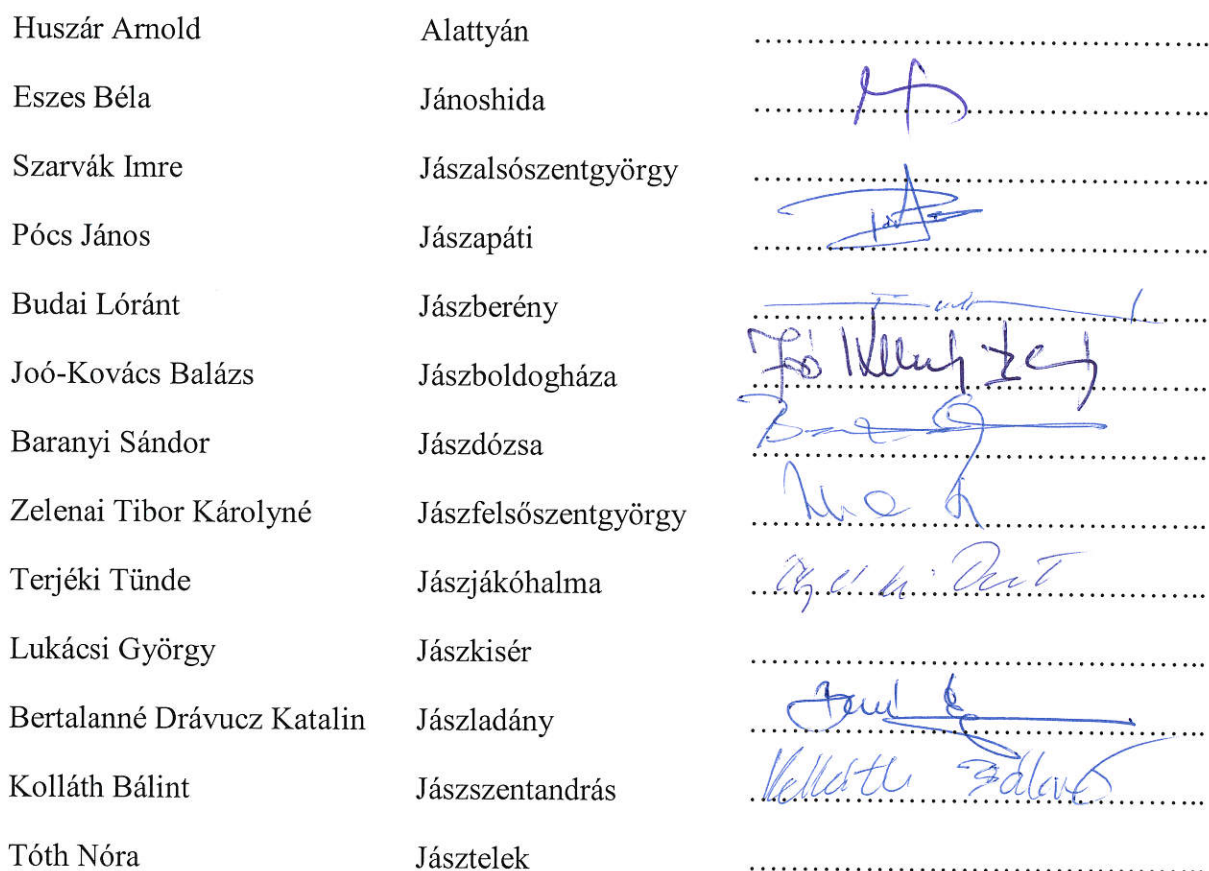 Huszár Arnold Alattyán ..........................................
Eszes Béla Jánoshida ..........................................
Szarvák Imre Jászalsószentgyörgy ..........................................
Pócs János Jászapáti ..........................................
Budai Lóránt Jászberény ..........................................
Joó-Kovács Balázs Jászboldogháza ..........................................
Baranyi Sándor Jászdózsa ..........................................
Zelenai Tibor Károlyné Jászfelsőszentgyörgy ..........................................
Terjéki Tünde Jászjákóhalma ..........................................
Lukácsi György Jászkisér ..........................................
Bertalanné Drávucz Katalin Jászladány ..........................................
Kolláth Bálint Jászszentandrás Kolláth Bálint
Tóth Nóra Jásztelek ..........................................